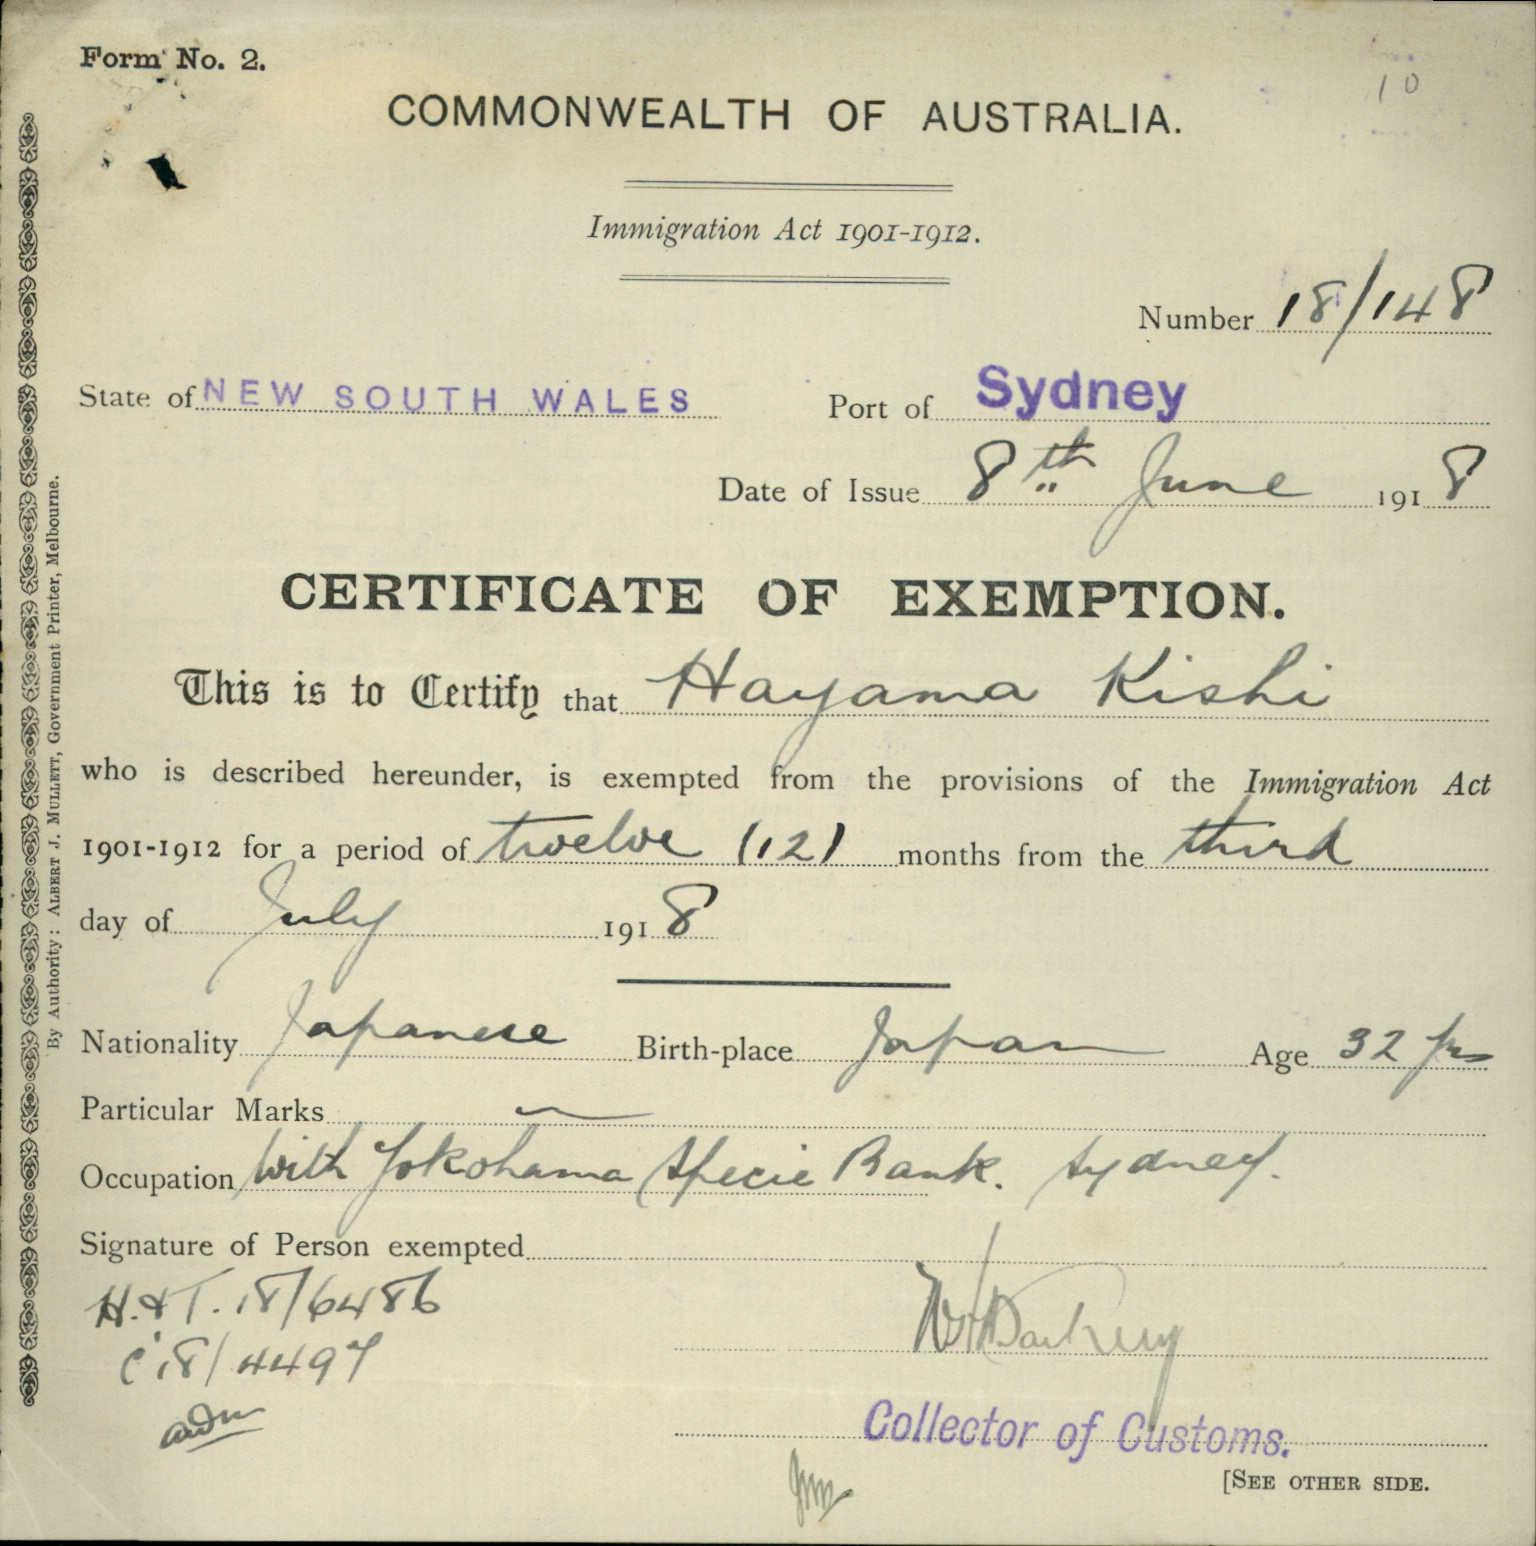 Form No. 2.
10
COMMONWEALTH OF AUSTRALIA.
Immigration Act 1901-1912.
Number 18/148
State of NEW SOUTH WALES Port of Sydney
Date of Issue 8th June 1918
CERTIFICATE OF EXEMPTION.
This is to Certify that Hayama Kishi
who is described hereunder, is exempted from the provisions of the Immigration Act
1901-1912 for a period of twelve (12) months from the third
day of July 1918
Nationality Japanese Birth-place Japan Age 32 yrs
Particular Marks
Occupation With Yokohama Specie Bank. Sydney.
Signature of Person exempted
H.&T. 18/6486
C 18/4497
Collector of Customs.
[SEE OTHER SIDE.
By Authority: ALBERT J. MULLETT, Government Printer, Melbourne.